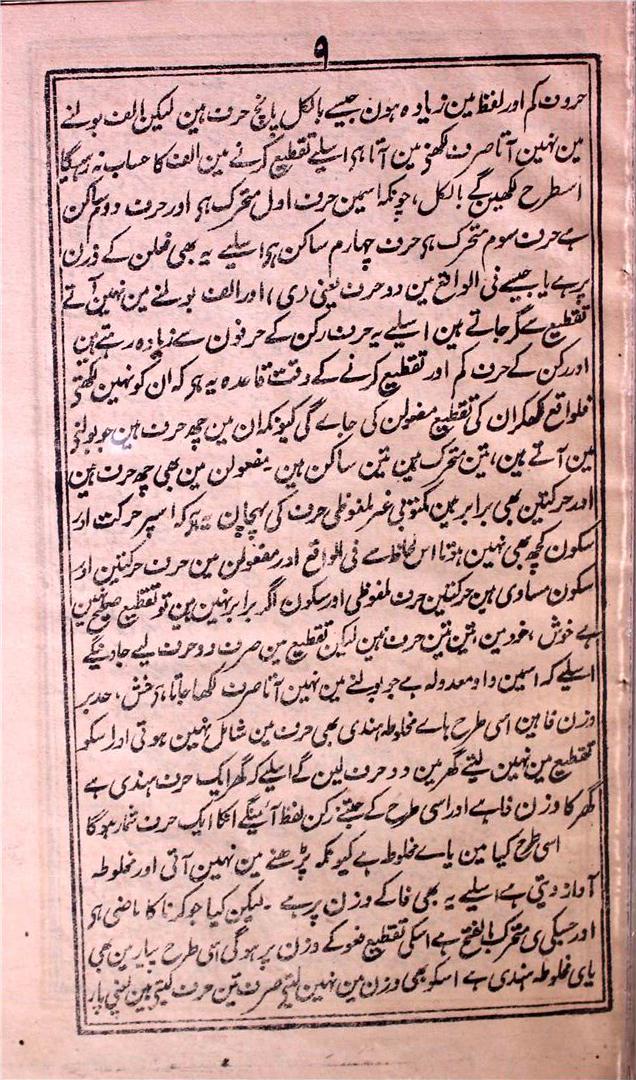 ۹
حروف کم اور لفظ مین زیادہ ہون جیسے بالکل پانچ حرف ہین لیکن الف بولنے
مین نہین آتا صرف لکھنے مین آتا ہی اسلیے تقطیع کرنے مین الف کا حساب نہ رہیگا
اسطرح لکھین گے بالکل، چونکہ اسمین حرف اول متحرک ہو اور حرف دوم ساکن
ہے حرف سوم متحرک ہو حرف چہارم ساکن ہو اسلیے یہ بھی فعلن کے وزن
پر ہے یا جیسے فی الواقع مین دو حرف یعنی (ی) اور الف بولنے مین نہین آتے
تقطیع سے گر جاتے ہین اسلیے یہ حرف رکن کے حرفون سے زیادہ رہتے ہین
اور رکن کے حرف کم اور تقطیع کرنے کے وقت قاعدہ یہ ہو کہ ان کو نہین لکھتے
فلواقع لکھکر ان کی تقطیع مفعولن کی جاے گی کیونکہ ان مین چھ حرف ہین جو بولنے
مین آتے ہین، تین متحرک ہین تین ساکن ہین ۔ مفعولن مین بھی چھ حرف ہین
اور حرکتین بھی برابر ہین مکتوبی غیر ملفوظی حرف کی پہچان یہ ہو کہ اسپر حرکت اور
سکون کچھ بھی نہین ہوتا اس لحاظ سے فی الواقع اور مفعولن مین حرف حرکتین اور
سکون مساوی ہین حرکتین حرف ملفوظی اور سکون اگر برابر نہین ہین تو تقطیع صحیح نہین
ہے خوش، خود مین، تین تین حرف ہین لیکن تقطیع مین صرف دو حرف لیے جاوینگے
اسلیے کہ اسمین واو معدولہ ہے جو بولنے مین نہین آتا صرف لکھا جاتا ہی خش، خد بر
وزن فا ہین اسی طرح ہاے مخلوطہ ہندی بھی حرف مین شامل نہین ہوتی اور اسکو
تقطیع مین نہین لیتے گھر مین دو حرف لین گے اسلیے کہ گھ ایک حرف ہندی ہے
گھر کا وزن فا ہے اور اسی طرح کے جتنے رکن لفظ آئینگے انکا ایک حرف شمار ہوگا
اسی طرح کیا مین یاے مخلوط ہے کیونکہ پڑھنے مین نہین آتی اور مخلوطہ
آواز دیتی ہے اسلیے یہ بھی فا کے وزن پر ہے ۔ لیکن کیا جو کرنا کا ماضی ہو
اور جسکی ی متحرک بالفتح ہے اسکی تقطیع فعو کے وزن پر ہوگی اسی طرح پیار مین بھی
یای مخلوطہ ہندی ہے اسکو بھی وزن مین نہین لیتے صرف تین حرف لیتے ہین یعنی پار